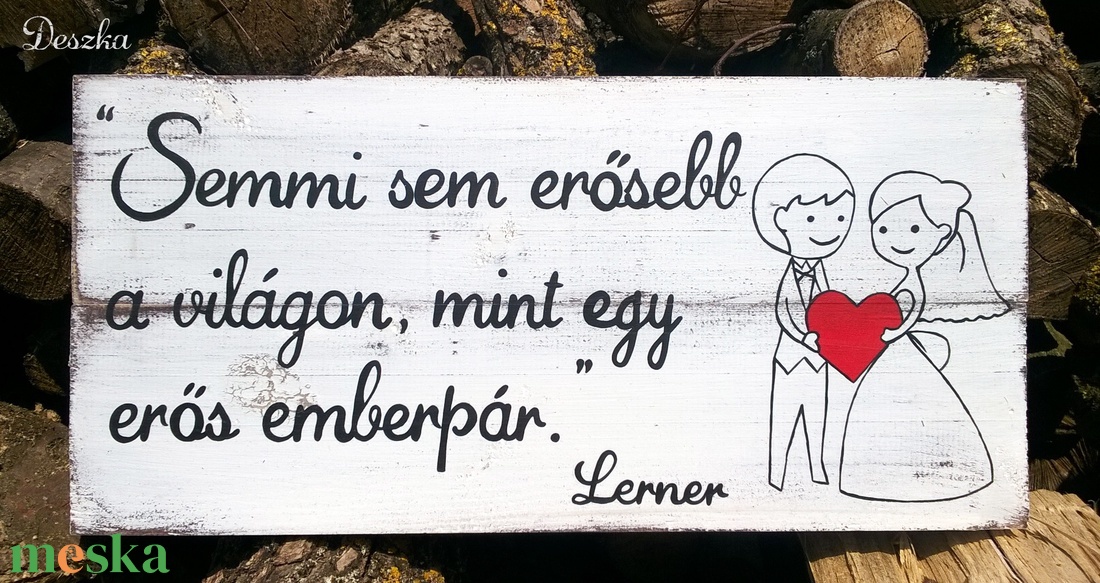 Deszka
“Semmi sem erősebb
a világon, mint egy
erős emberpár.”
Lerner
meska